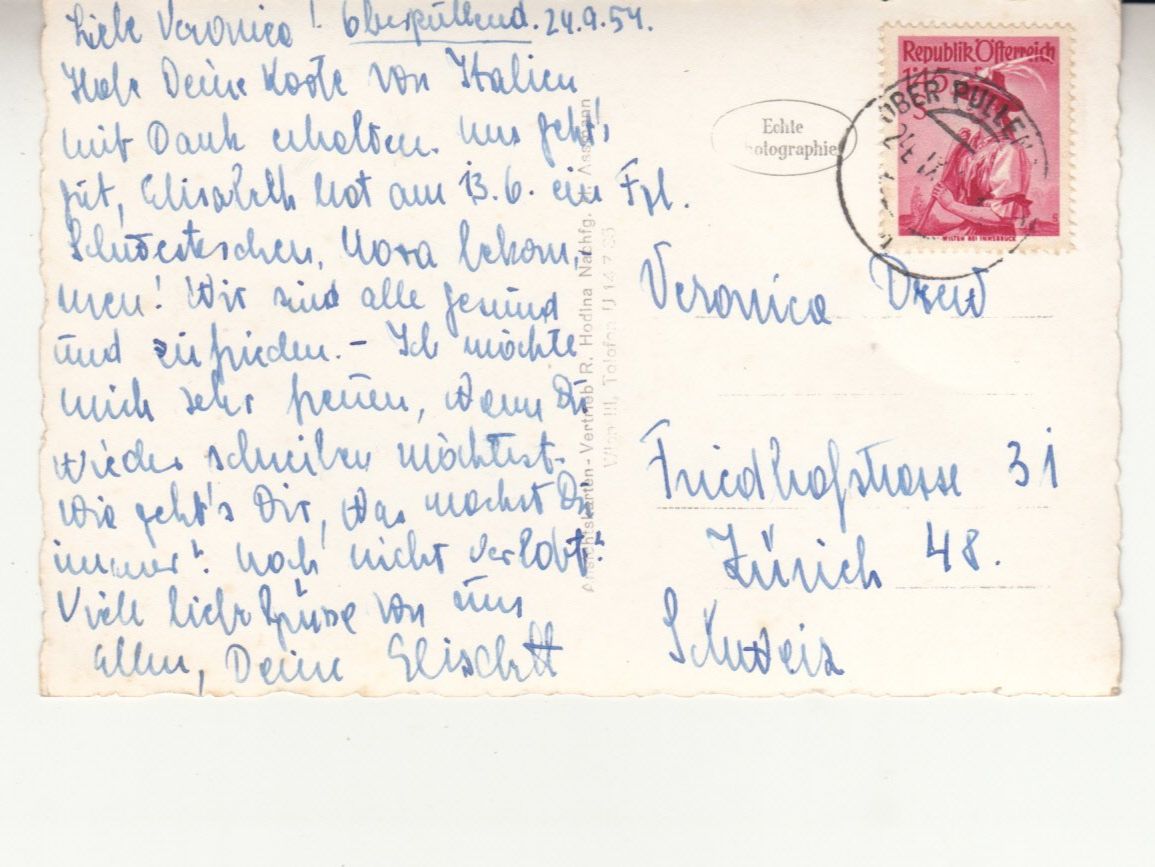 Liebe Veronica! Oberpullend. 24.9.54.
Habe Deine Karte von Italien
mit Dank erhalten. uns geht's
gut, Elisabeth hat am 13.6. ein
Schwesterchen, Nora bekom-
men! Wir sind alle gesund
und zufrieden. - Ich möchte
mich sehr freuen, wenn Du
wieder schreiben möchtest.
Wie geht's Dir, was machst Du
immer? noch nicht verlobt?
Viele liebe Grüsse von uns
allen, Deine
Ansichtskarten-Vertrieb R. Hodina Nachfg. Assmann
Wien III, Telefon U
Echte
Photographie
Republik Österreich
1'45
S
WILTEN BEI INNSBRUCK
OBER PULLEN
Frl.
Veronica
Friedhofstrasse 31
Zürich 48.
Schweiz